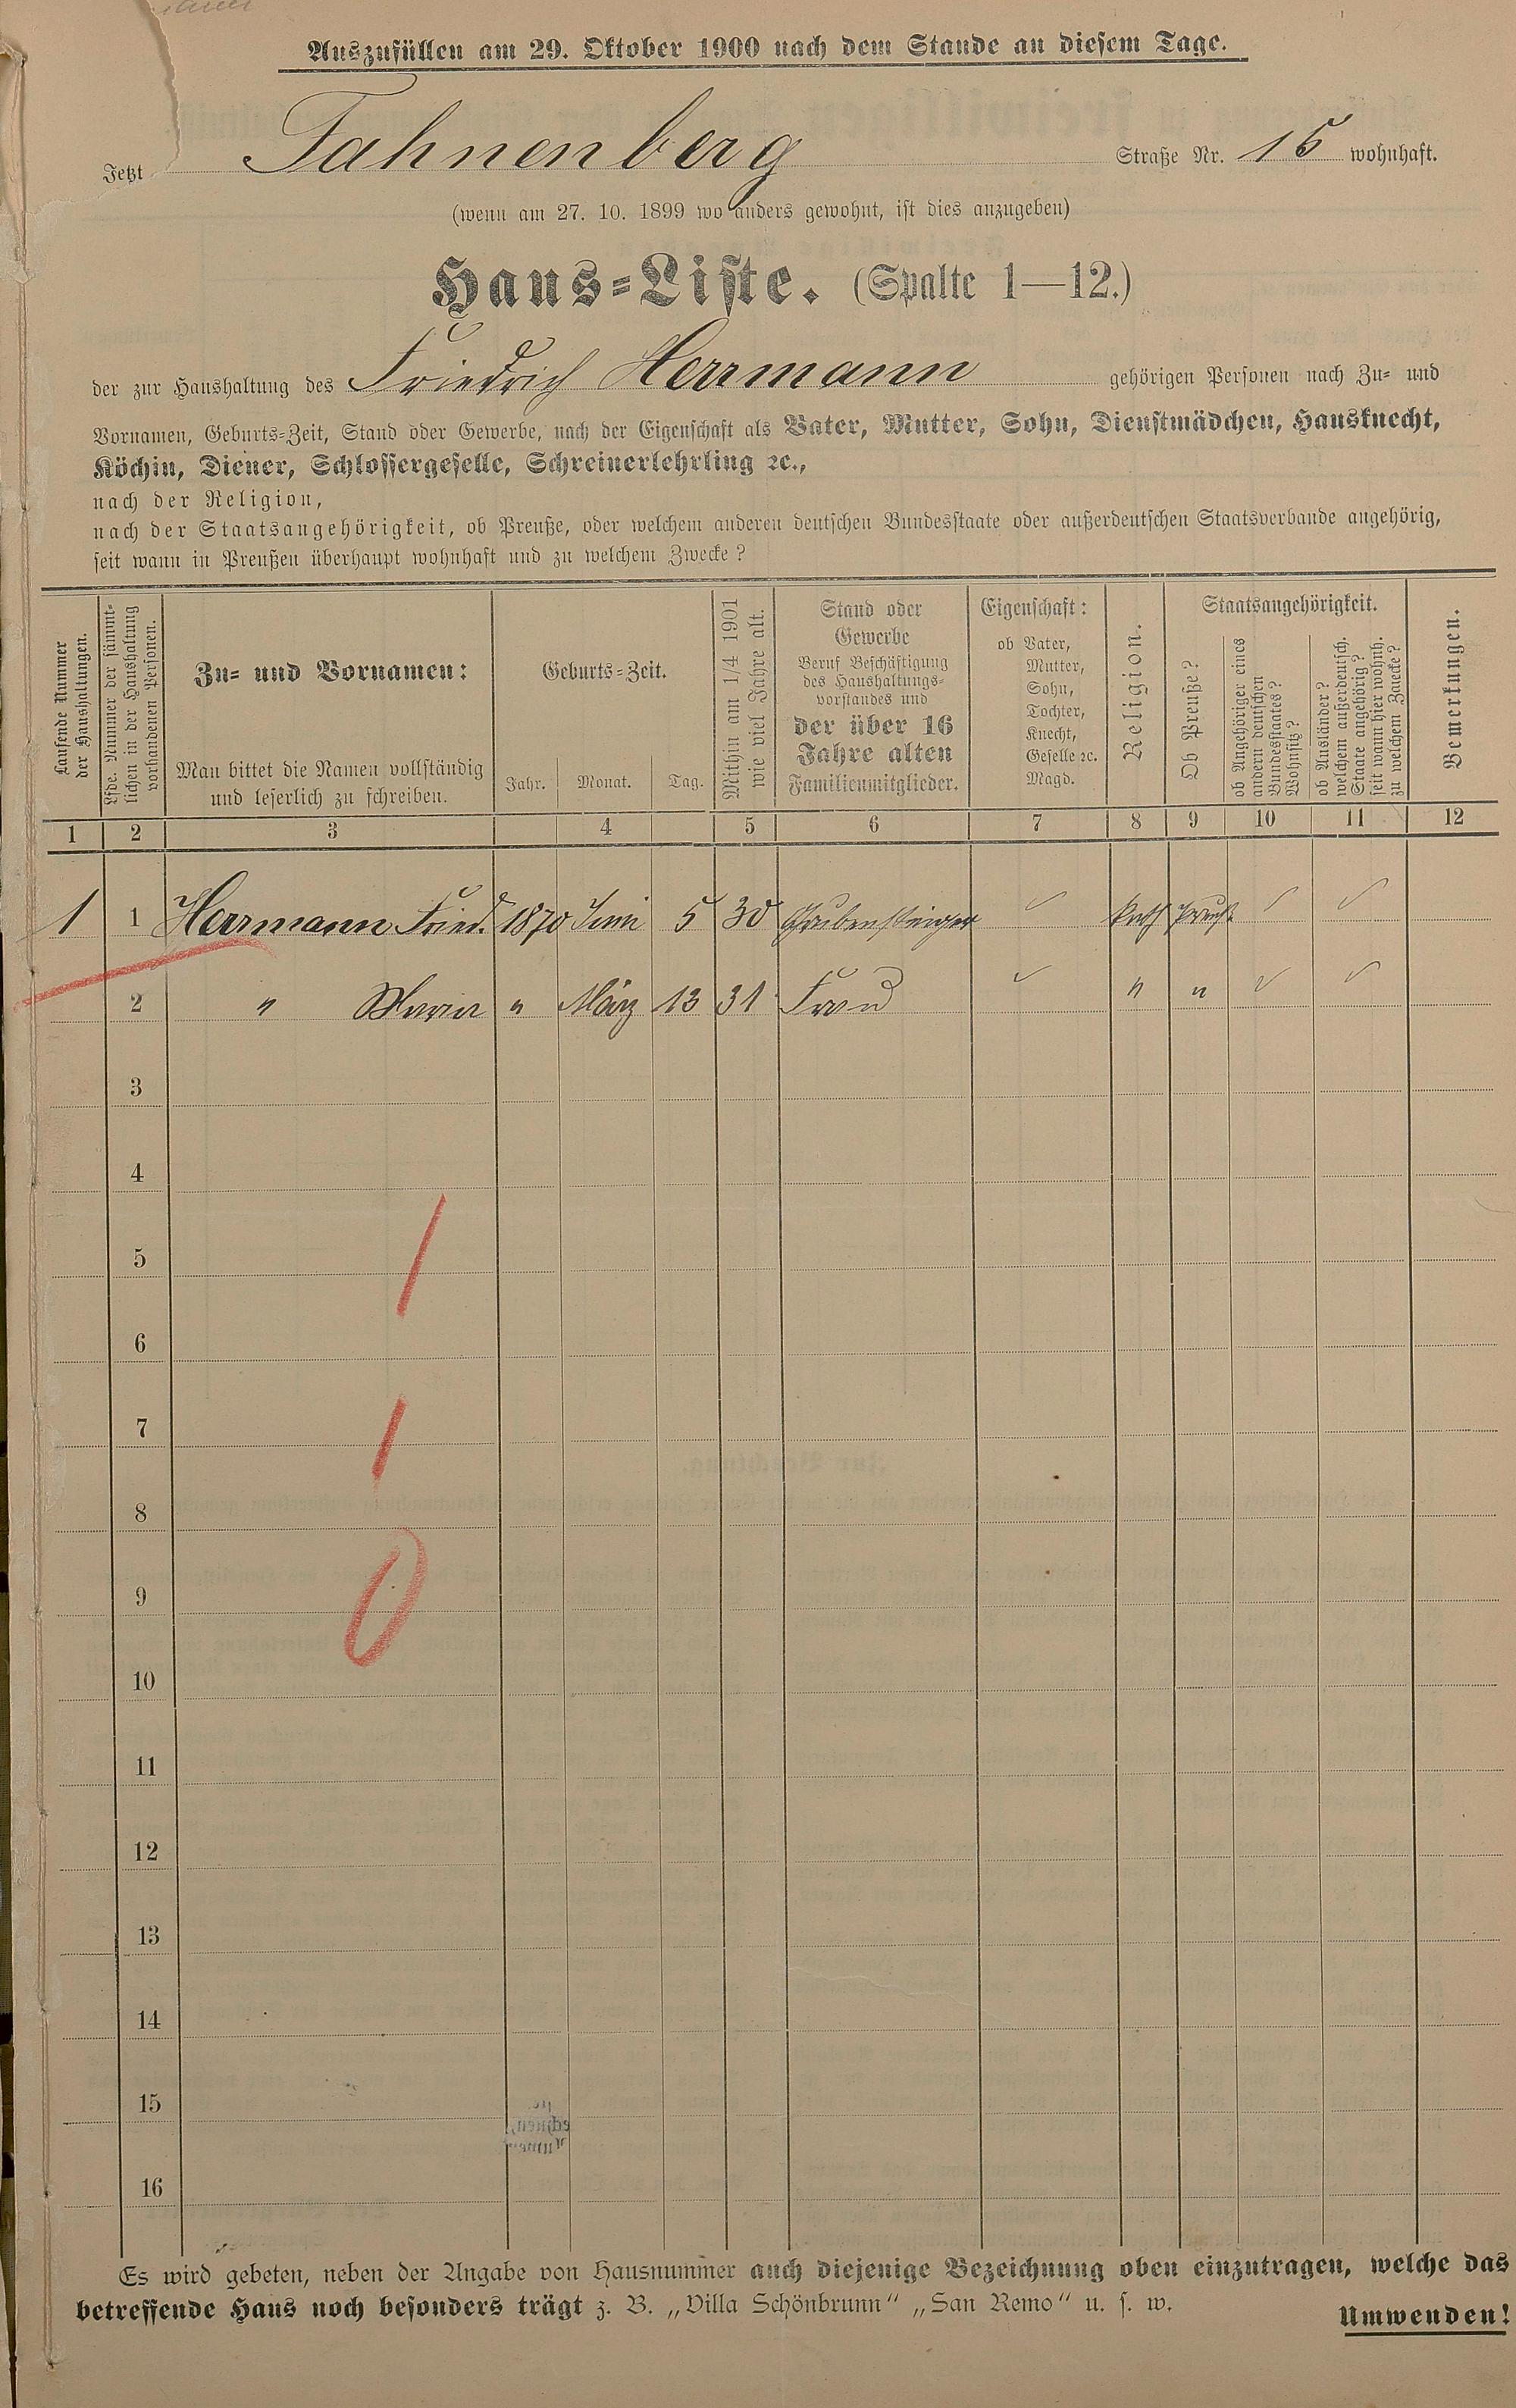 Auszufüllen am 29. Oktober 1900 nach dem Stande an diesem Tage.
Jetzt Fahnenberg Straße Nr. 15 wohnhaft.
(wenn am 27. 10. 1899 wo anders gewohnt, ist dies anzugeben)
Haus=Liste. (Spalte 1—12.)
der zur Haushaltung des Friedrich Herrmann gehörigen Personen nach Zu= und
Vornamen, Geburts=Zeit, Stand oder Gewerbe, nach der Eigenschaft als Vater, Mutter, Sohn, Dienstmädchen, Hausknecht,
Köchin, Diener, Schlossergeselle, Schreinerlehrling ꝛc.,
nach der Religion,
nach der Staatsangehörigkeit, ob Preuße, oder welchem anderen deutschen Bundesstaate oder außerdeutschen Staatsverbande angehörig,
seit wann in Preußen überhaupt wohnhaft und zu welchem Zwecke?
Laufende Nummer
der Haushaltungen.
Lfde. Nummer der sämmt-
lichen in der Haushaltung
vorhandenen Personen.
Zu= und Vornamen:
Man bittet die Namen vollständig
und leserlich zu schreiben.
Geburts=Zeit.
Jahr. Monat. Tag.
Mithin am 1/4 1901
wie viel Jahre alt.
Stand oder
Gewerbe
Beruf Beschäftigung
des Haushaltungs=
vorstandes und
der über 16
Jahre alten
Familienmitglieder.
Eigenschaft:
ob Vater,
Mutter,
Sohn,
Tochter,
Knecht,
Geselle ꝛc.
Magd.
Religion.
Staatsangehörigkeit.
Ob Preuße?
ob Angehöriger eines
andern deutschen
Bundesstaates?
Wohnsitz?
ob Ausländer?
welchem außerdeutsch.
Staate angehörig?
seit wann hier wohnh.
zu welchem Zwecke?
Bemerkungen.
1 2 3 4 5 6 7 8 9 10 11 12
1 1 Herrmann Fried. 1870 Juni 5 30 Grubensteiger Kath Preuß
2 " Maria " März 13 31 Frau " "
3
4
5
6
7
8
9
10
11
12
13
14
15
16
Es wird gebeten, neben der Angabe von Hausnummer auch diejenige Bezeichnung oben einzutragen, welche das
betreffende Haus noch besonders trägt z. B. „Villa Schönbrunn“ „San Remo“ u. s. w.
Umwenden!